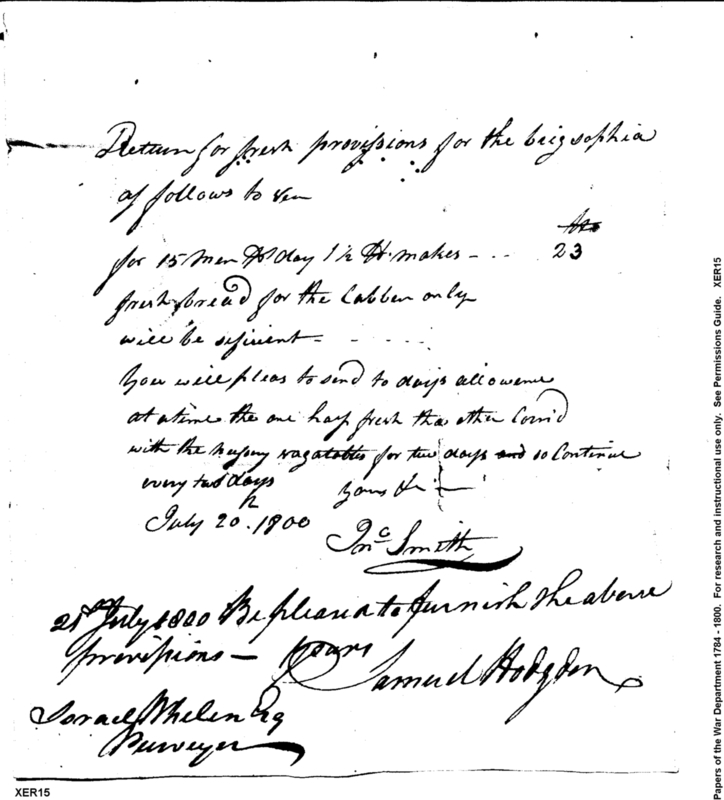 Return for fresh provissions for the brig sophia
as follows to
for 15 men Pr day 1½ lb makes - . . . 23
fresh bread for the Cabben only
will be sifirent - - - - - -
You will pleas to send to days allowence
at a time the one half fresh the other Corn'd
with the vagatables for two days and so Continue
every two days
yours &c
July 20. 1800
Jno Smith
21st July 1800 Be pleased to furnish the above
provissions - yours
Samuel Hodgdon
Israel Whelen Esq
Purveyer
XER15
Papers of the War Department 1784 - 1800. For research and instructional use only. See Permissions Guide. XER15